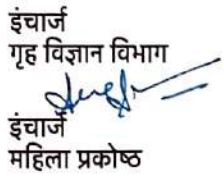 इंचार्ज
गृह विज्ञान विभाग
इंचार्ज
महिला प्रकोष्ठ